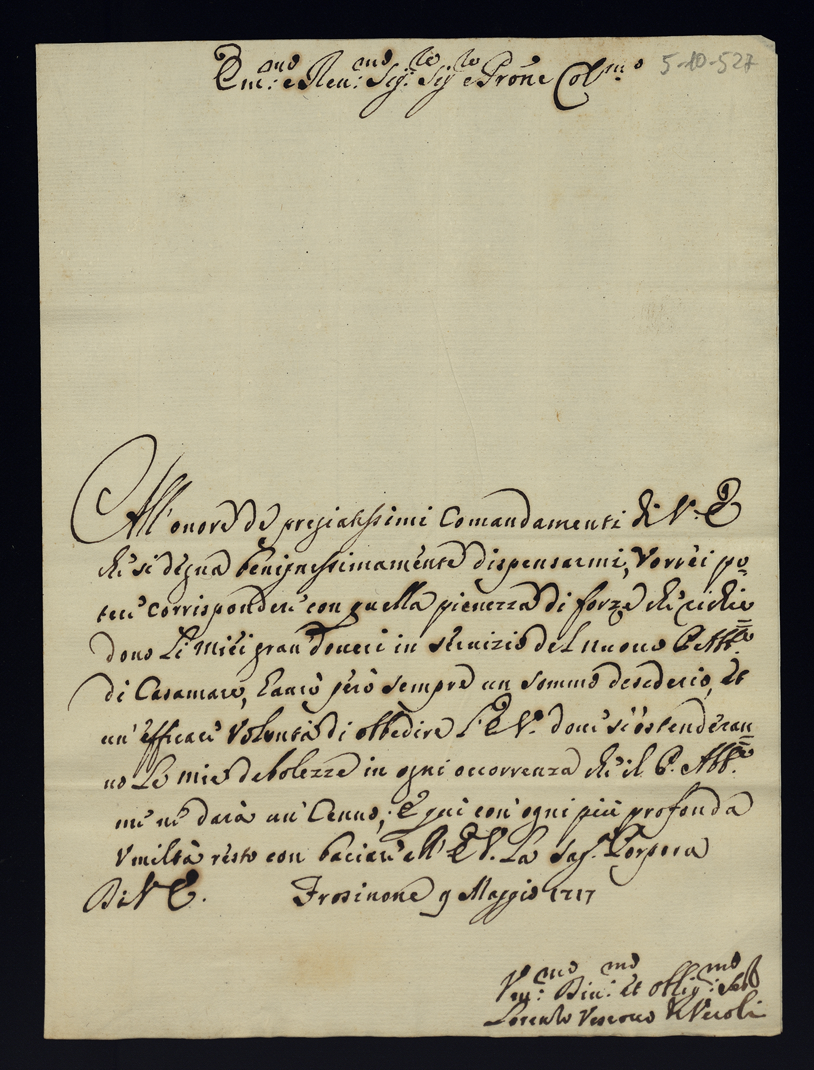 Em:mo e Reu:mo Sig:re Sig:re e Prone Col:mo 5-10-527
All'onore de pregiatissimi Comandamenti di V. E.
che si degna benignessimamente dispensarmi, Vorrei po
tere corrispondere con quella pienezza di forze che richie
dono Li miei gran doueri in seruizio del nuouo P. Abb:e
di Casamaro, Hauro però sempre un sommo desederio, et
un'efficace Volontà di obbedire L'E. V. doue si estenderan
no Le mie debolezze in ogni occorrenza che il P. Abb:e
me ne darà un Cenno; E qui con ogni più profonda
Vmiltà resto con baciare all'E. V. La Sag: Porpora
Di V. E. Frosinone 9 Maggio 1717
Vm:mo Diu:mo et obblig:mo Ser
Lorenzo Vescouo di Veroli